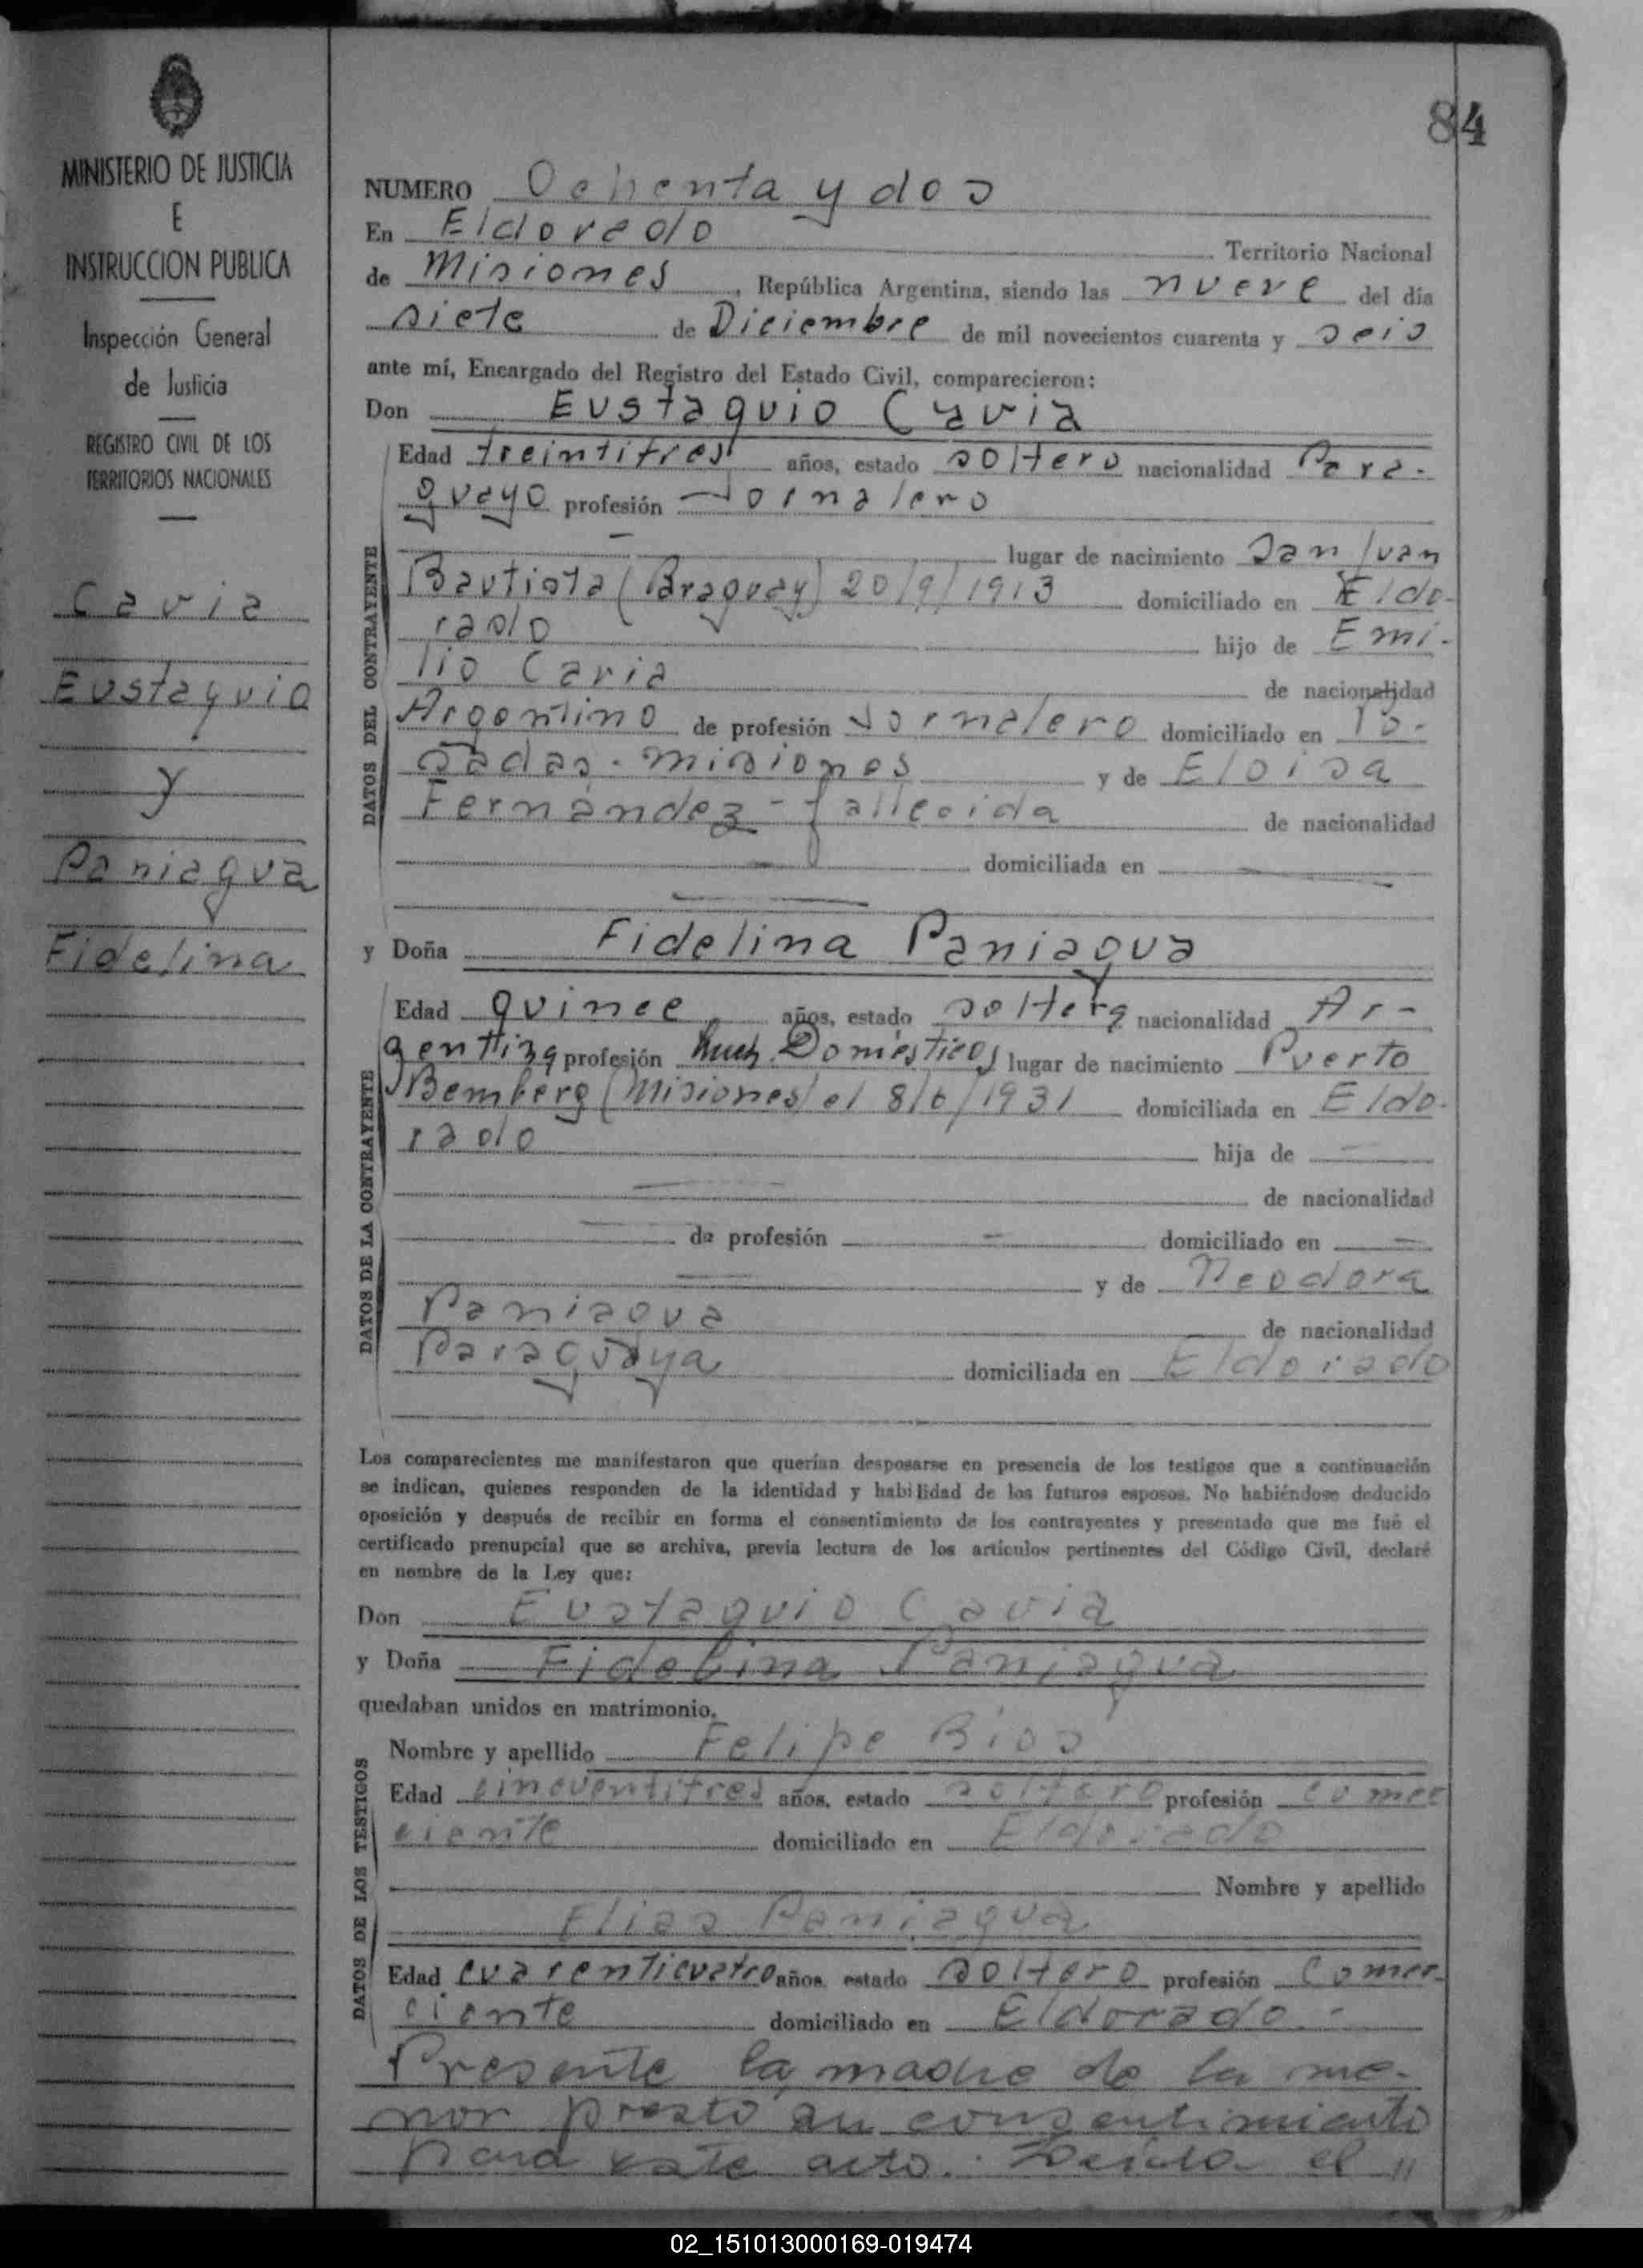 84
MINISTERIO DE JUSTICIA
E
INSTRUCCION PUBLICA
Inspección General
de Justicia
REGISTRO CIVIL DE LOS
TERRITORIOS NACIONALES
Cavia
Eustaquio
y
Paniagua
Fidelina
NUMERO Ochenta y dos
En Eldorado Territorio Nacional
de Misiones, República Argentina, siendo las nueve del día
siete de Diciembre de mil novecientos cuarenta y seis
ante mí, Encargado del Registro del Estado Civil, comparecieron:
Don Eustaquio Cavia
DATOS DEL CONTRAYENTE
Edad treintitres años, estado soltero nacionalidad Para-
guayo profesión Jornalero
lugar de nacimiento San Juan
Bautista (Paraguay) 20/9/1913 domiciliado en Eldo-
rado hijo de Emi-
lio Cavia de nacionalidad
Argentino de profesión Jornalero domiciliado en Po-
sadas - Misiones y de Eloisa
Fernández - fallecida de nacionalidad
domiciliada en
y Doña Fidelina Paniagua
DATOS DE LA CONTRAYENTE
Edad quince años, estado soltera nacionalidad Ar-
gentina profesión Queh. Domésticos lugar de nacimiento Puerto
Bemberg (Misiones) el 8/6/1931 domiciliada en Eldo-
rado hija de
de nacionalidad
de profesión domiciliado en
y de Teodora
Paniagua de nacionalidad
Paraguaya domiciliada en Eldorado
Los comparecientes me manifestaron que querían desposarse en presencia de los testigos que a continuación
se indican, quienes responden de la identidad y habilidad de los futuros esposos. No habiéndose deducido
oposición y después de recibir en forma el consentimiento de los contrayentes y presentado que me fué el
certificado prenupcial que se archiva, previa lectura de los artículos pertinentes del Código Civil, declaré
en nombre de la Ley que:
Don Eustaquio Cavia
y Doña Fidelina Paniagua
quedaban unidos en matrimonio.
DATOS DE LOS TESTIGOS
Nombre y apellido Felipe Rios
Edad cincuentitres años, estado soltero profesión comer
ciante domiciliado en Eldorado
Nombre y apellido
Elias Paniagua
Edad cuarenticuatro años, estado soltero profesión Comer-
ciante domiciliado en Eldorado.-
Presente la madre de la me-
nor prestó su consentimiento
para este acto. Leída el "
02_151013000169-019474